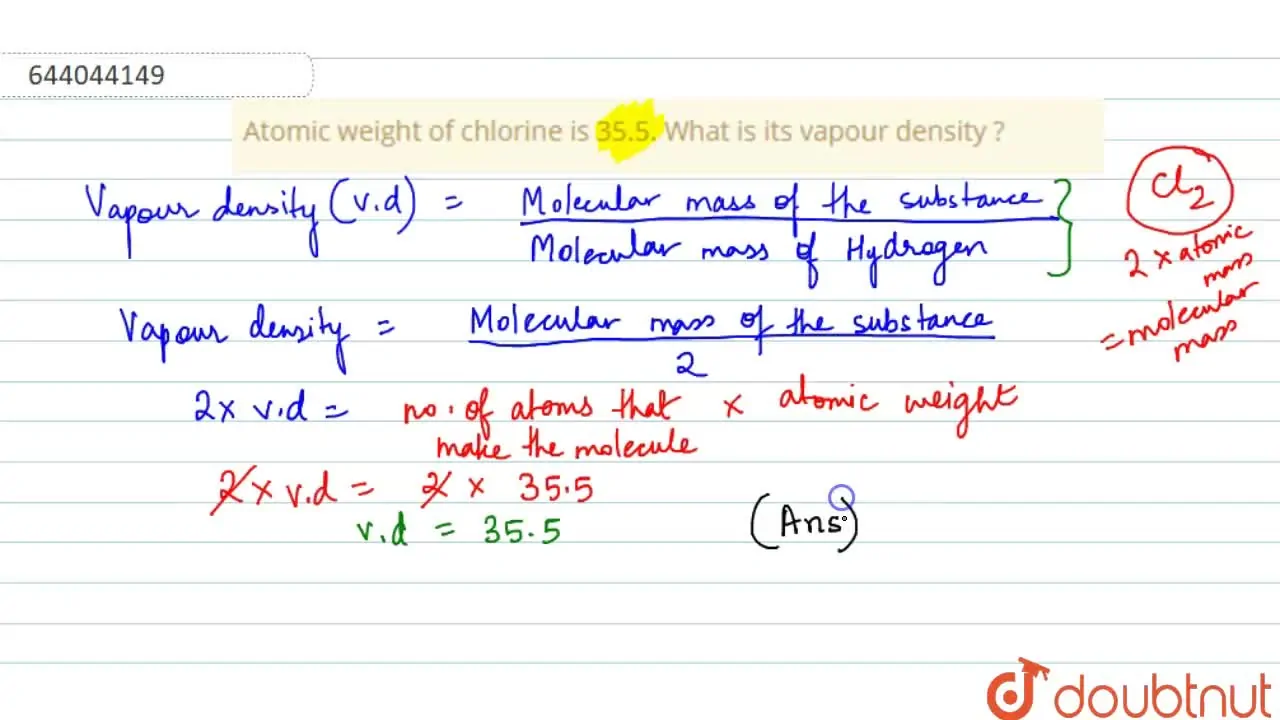 644044149
Atomic weight of chlorine is 35.5. What is its vapour density ?
Vapour density (v.d) = Molecular mass of the substance
Molecular mass of Hydrogen
Cl2
2 x atomic
mass
= molecular
mass
Vapour density = Molecular mass of the substance
2
2x v.d = no. of atoms that x atomic weight
make the molecule
2 x v.d = 2 x 35.5
v.d = 35.5
(Ans)
doubtnut